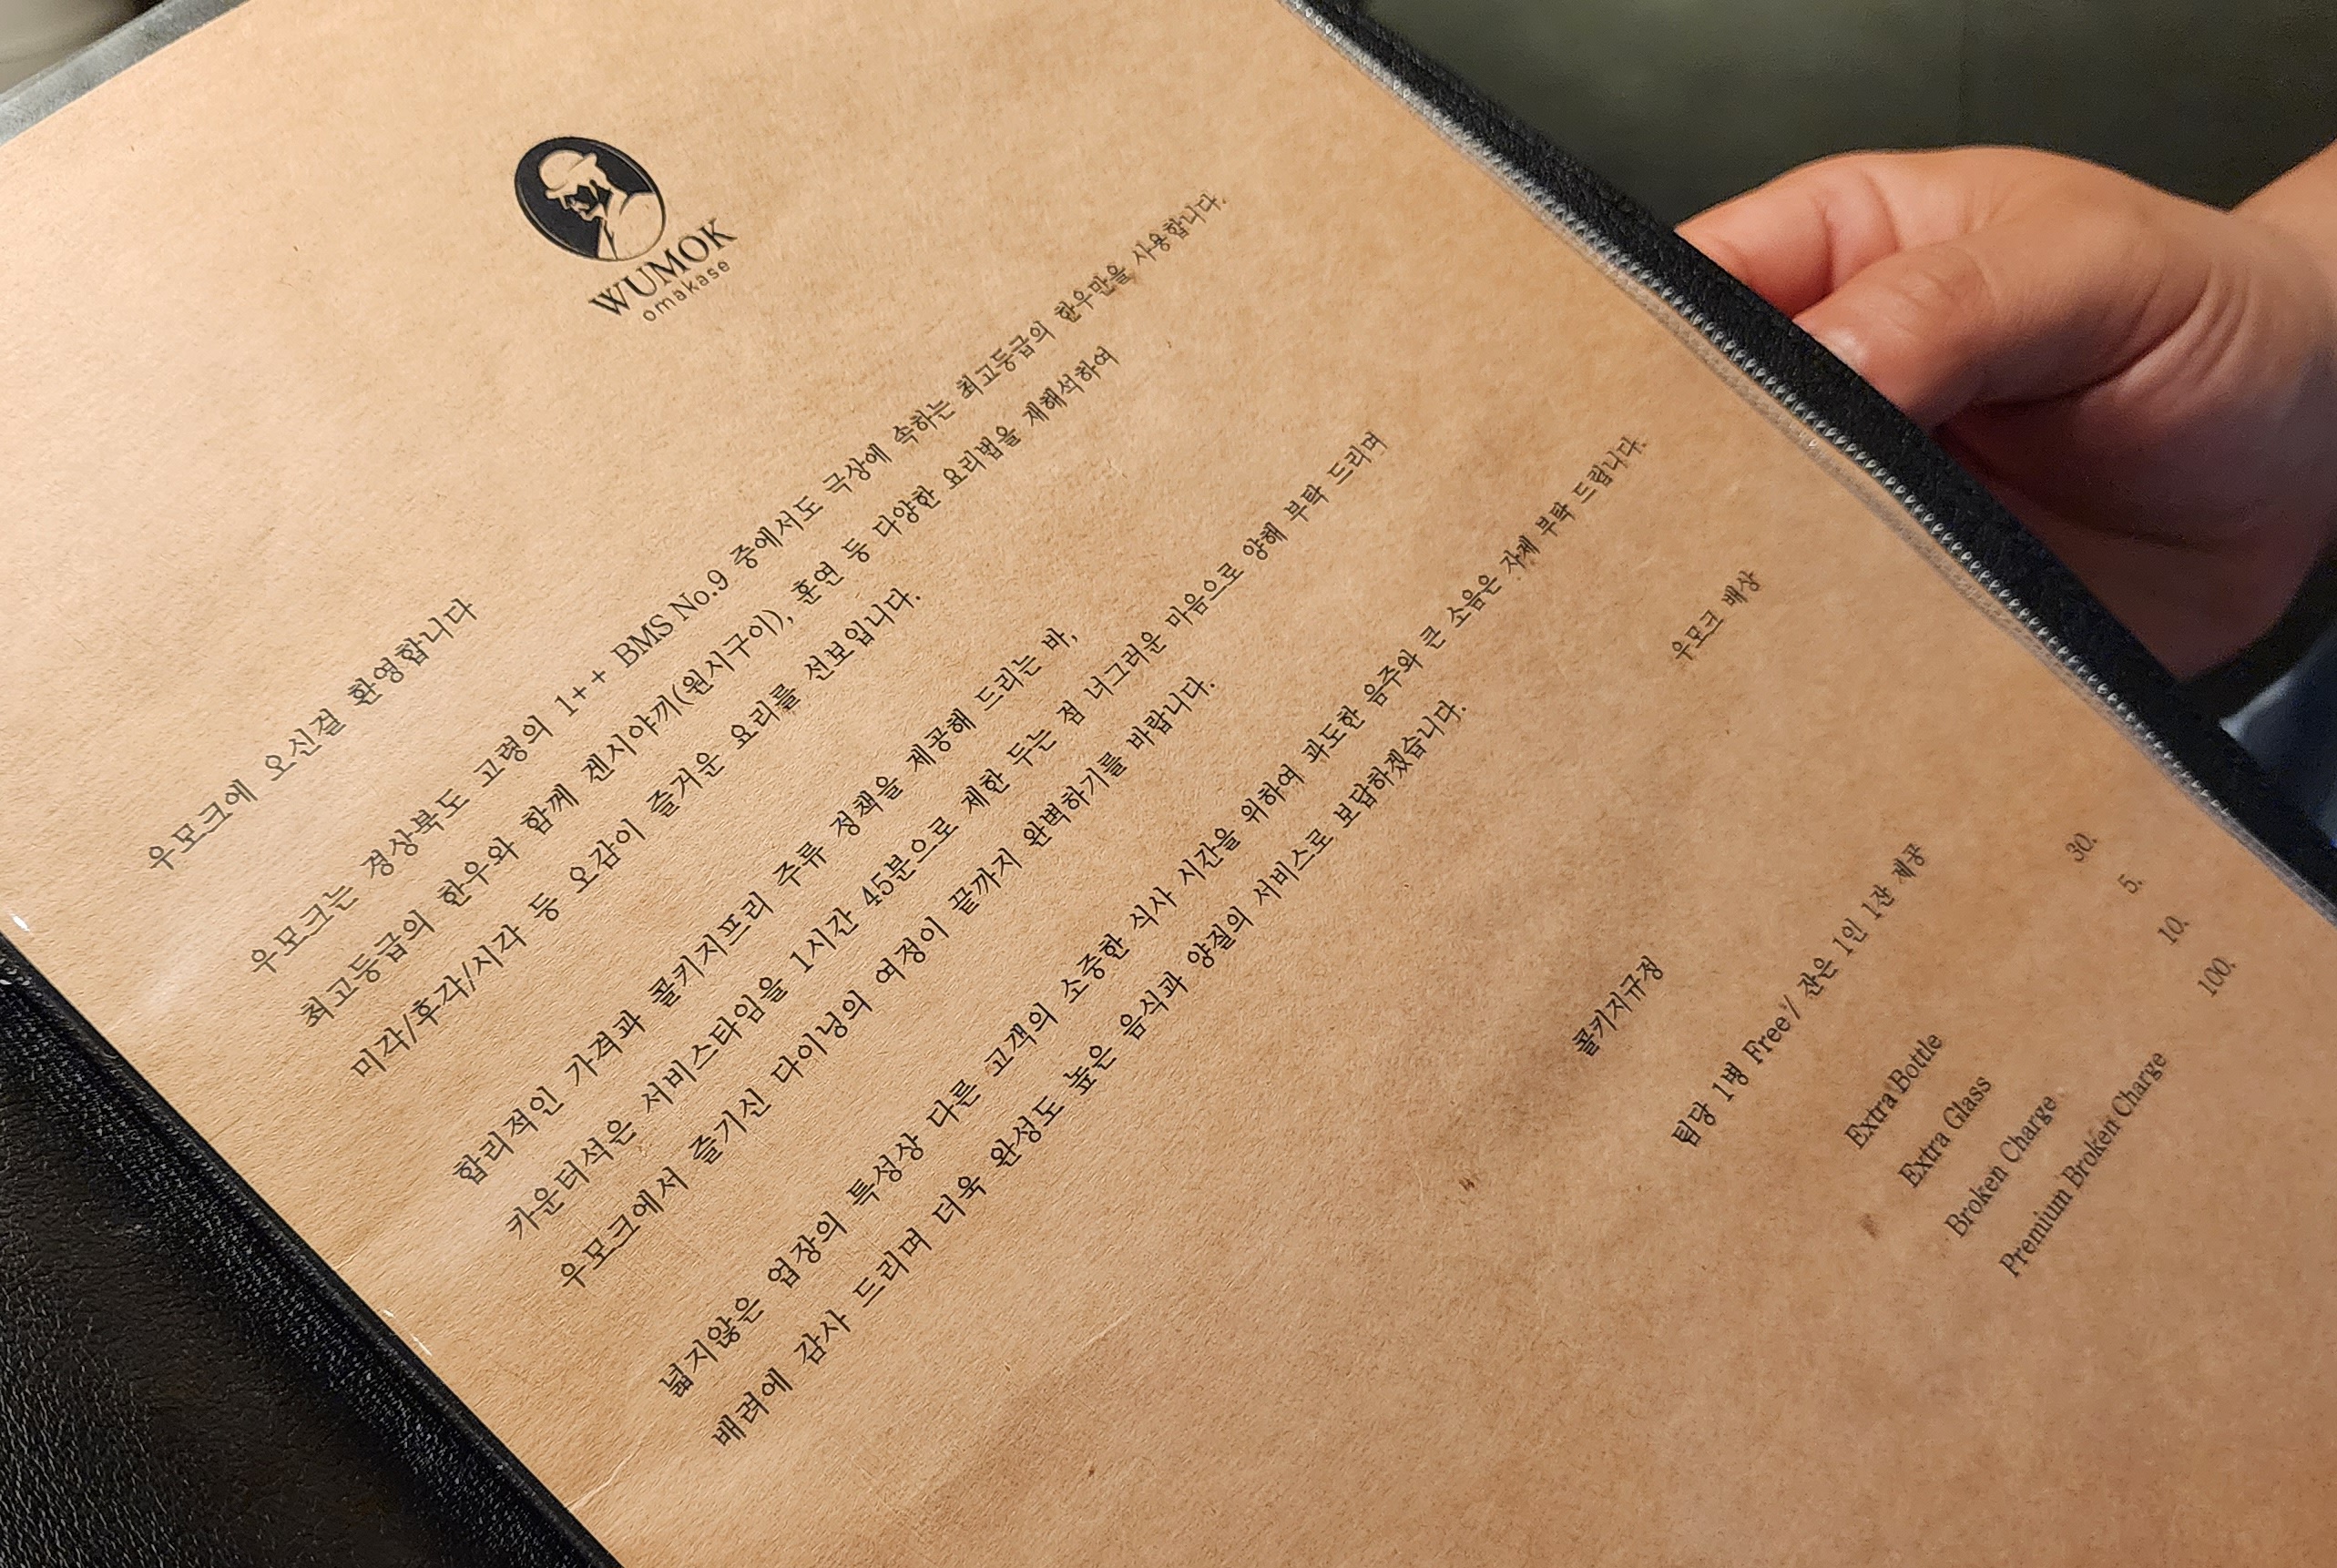 WUMOK
omakase
우모크에 오신걸 환영합니다
우모크는 경상북도 고령의 1++ BMS No.9 중에서도 극상에 속하는 최고등급의 한우만을 사용합니다.
최고등급의 한우와 함께 겐시야끼(원시구이), 훈연 등 다양한 요리법을 재해석하여
미각/후각/시각 등 오감이 즐거운 요리를 선보입니다.
합리적인 가격과 콜키지프리 주류 정책을 제공해 드리는 바,
카운터석은 서비스타임을 1시간 45분으로 제한 두는 점 너그러운 마음으로 양해 부탁 드리며
우모크에서 즐기신 다이닝의 여정이 끝까지 완벽하기를 바랍니다.
넓지않은 업장의 특성상 다른 고객의 소중한 식사 시간을 위하여 과도한 음주와 큰 소음은 자제 부탁 드립니다.
배려에 감사 드리며 더욱 완성도 높은 음식과 양질의 서비스로 보답하겠습니다.
우모크 배상
콜키지규정
팀당 1병 Free / 잔은 1인 1잔 제공
Extra Bottle 30.
Extra Glass 5.
Broken Charge 10.
Premium Broken Charge 100.